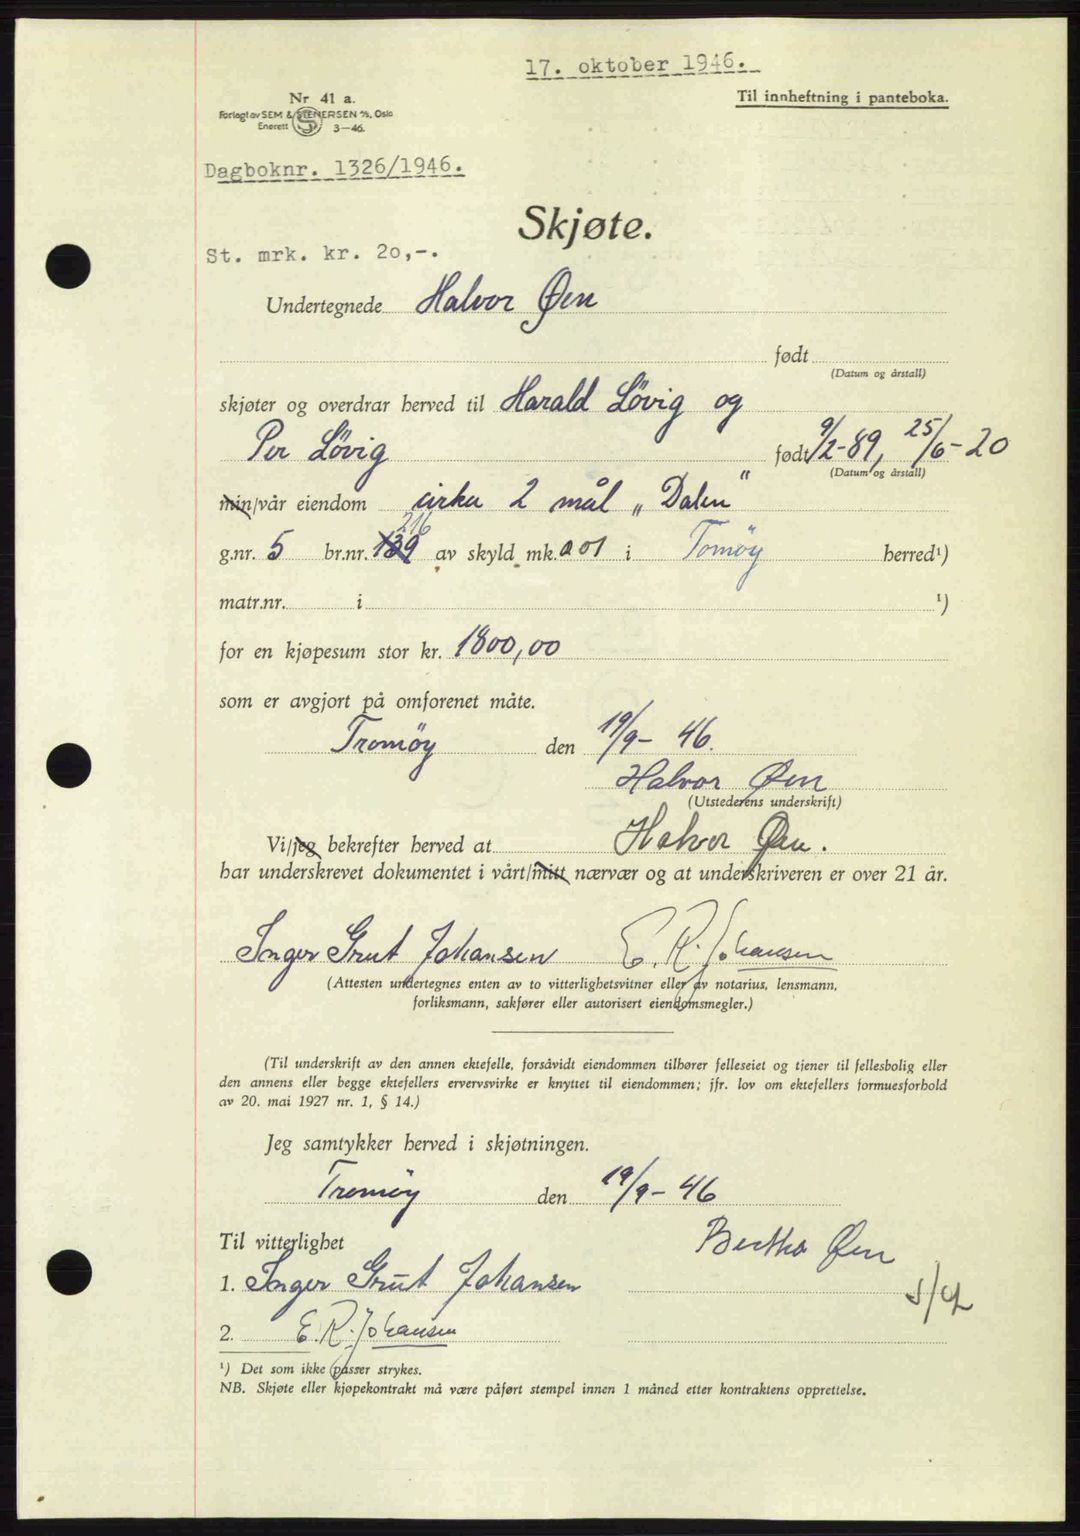 17. oktober 1946.
Nr 41 a.
Til innheftning i panteboka.
Forlagt av SEM & STENERSEN A/S, Oslo
Enerett S 3-46.
Dagboknr. 1326/1946.
Skjøte.
St. mrk. kr. 20,-.
Undertegnede Halvor Øen
født
(Datum og årstall)
skjøter og overdrar herved til Harald Lövig og
Per Lövig født 9/2-89, 25/6-20
(Datum og årstall)
min/vår eiendom cirka 2 mål „Dalen"
216
g.nr. 5 br.nr. 139 av skyld mk. 0 01 i Tomöy herred¹)
matr.nr. i ¹)
for en kjøpesum stor kr. 1800,00
som er avgjort på omforenet måte.
Tromöy den 19/9- 46.
Halvor Øen
(Utstederens underskrift)
Vi/jeg bekrefter herved at Halvor Øen.
har underskrevet dokumentet i vårt/mitt nærvær og at underskriveren er over 21 år.
Inger Grut Johansen E. R. Johansen
(Attesten undertegnes enten av to vitterlighetsvitner eller av notarius, lensmann,
forliksmann, sakfører eller autorisert eiendomsmegler.)
(Til underskrift av den annen ektefelle, forsåvidt eiendommen tilhører felleseiet og tjener til fellesbolig eller
den annens eller begge ektefellers ervervsvirke er knyttet til eiendommen; jfr. lov om ektefellers formuesforhold
av 20. mai 1927 nr. 1, § 14.)
Jeg samtykker herved i skjøtningen.
Tromöy den 19/9- 46
Til vitterlighet
Bertha Øen
1. Inger Grut Johansen
2. E. R. Johansen
¹) Det som ikke passer strykes.
NB. Skjøte eller kjøpekontrakt må være påført stempel innen 1 måned etter kontraktens opprettelse.